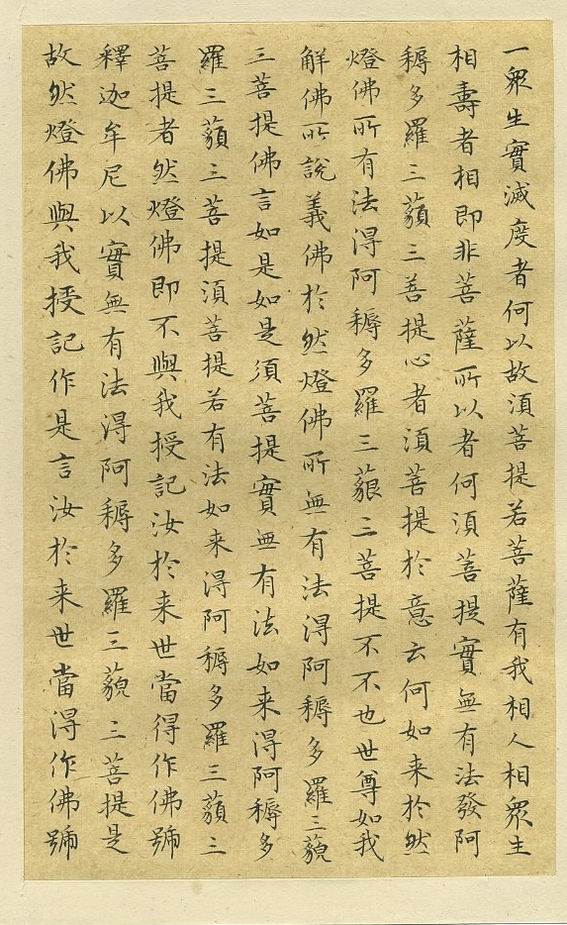 一衆生實滅度者何以故須菩提若菩薩有我相人相衆生
相壽者相即非菩薩所以者何須菩提實無有法發阿
耨多羅三藐三菩提心者須菩提於意云何如来於然
燈佛所有法得阿耨多羅三藐三菩提不不也世尊如我
解佛所說義佛於然燈佛所無有法得阿耨多羅三藐
三菩提佛言如是如是須菩提實無有法如来得阿耨多
羅三藐三菩提須菩提若有法如来得阿耨多羅三藐三
菩提者然燈佛即不與我授記汝於来世當得作佛號
釋迦牟尼以實無有法得阿耨多羅三藐三菩提是
故然燈佛與我授記作是言汝於来世當得作佛號